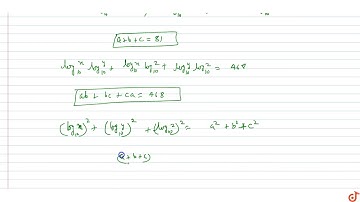 a+b+c = 81
log₁₀ˣ log₁₀ʸ + log₁₀ˣ log₁₀ᶻ + log₁₀ʸ log₁₀ᶻ = 468
ab + bc + ca = 468
(log₁₀ˣ)² + (log₁₀ʸ)² + (log₁₀ᶻ)² = a² + b² + c²
(a+b+c)
doubtnut